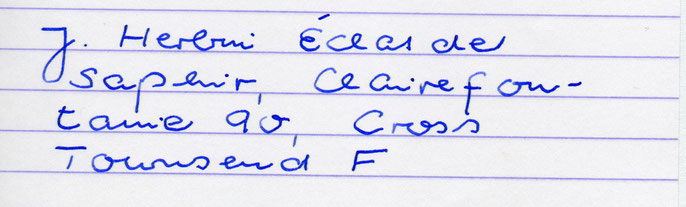 J. Herbin Éclat de
Saphir, Clairefon-
taine 90, Cross
Townsend F